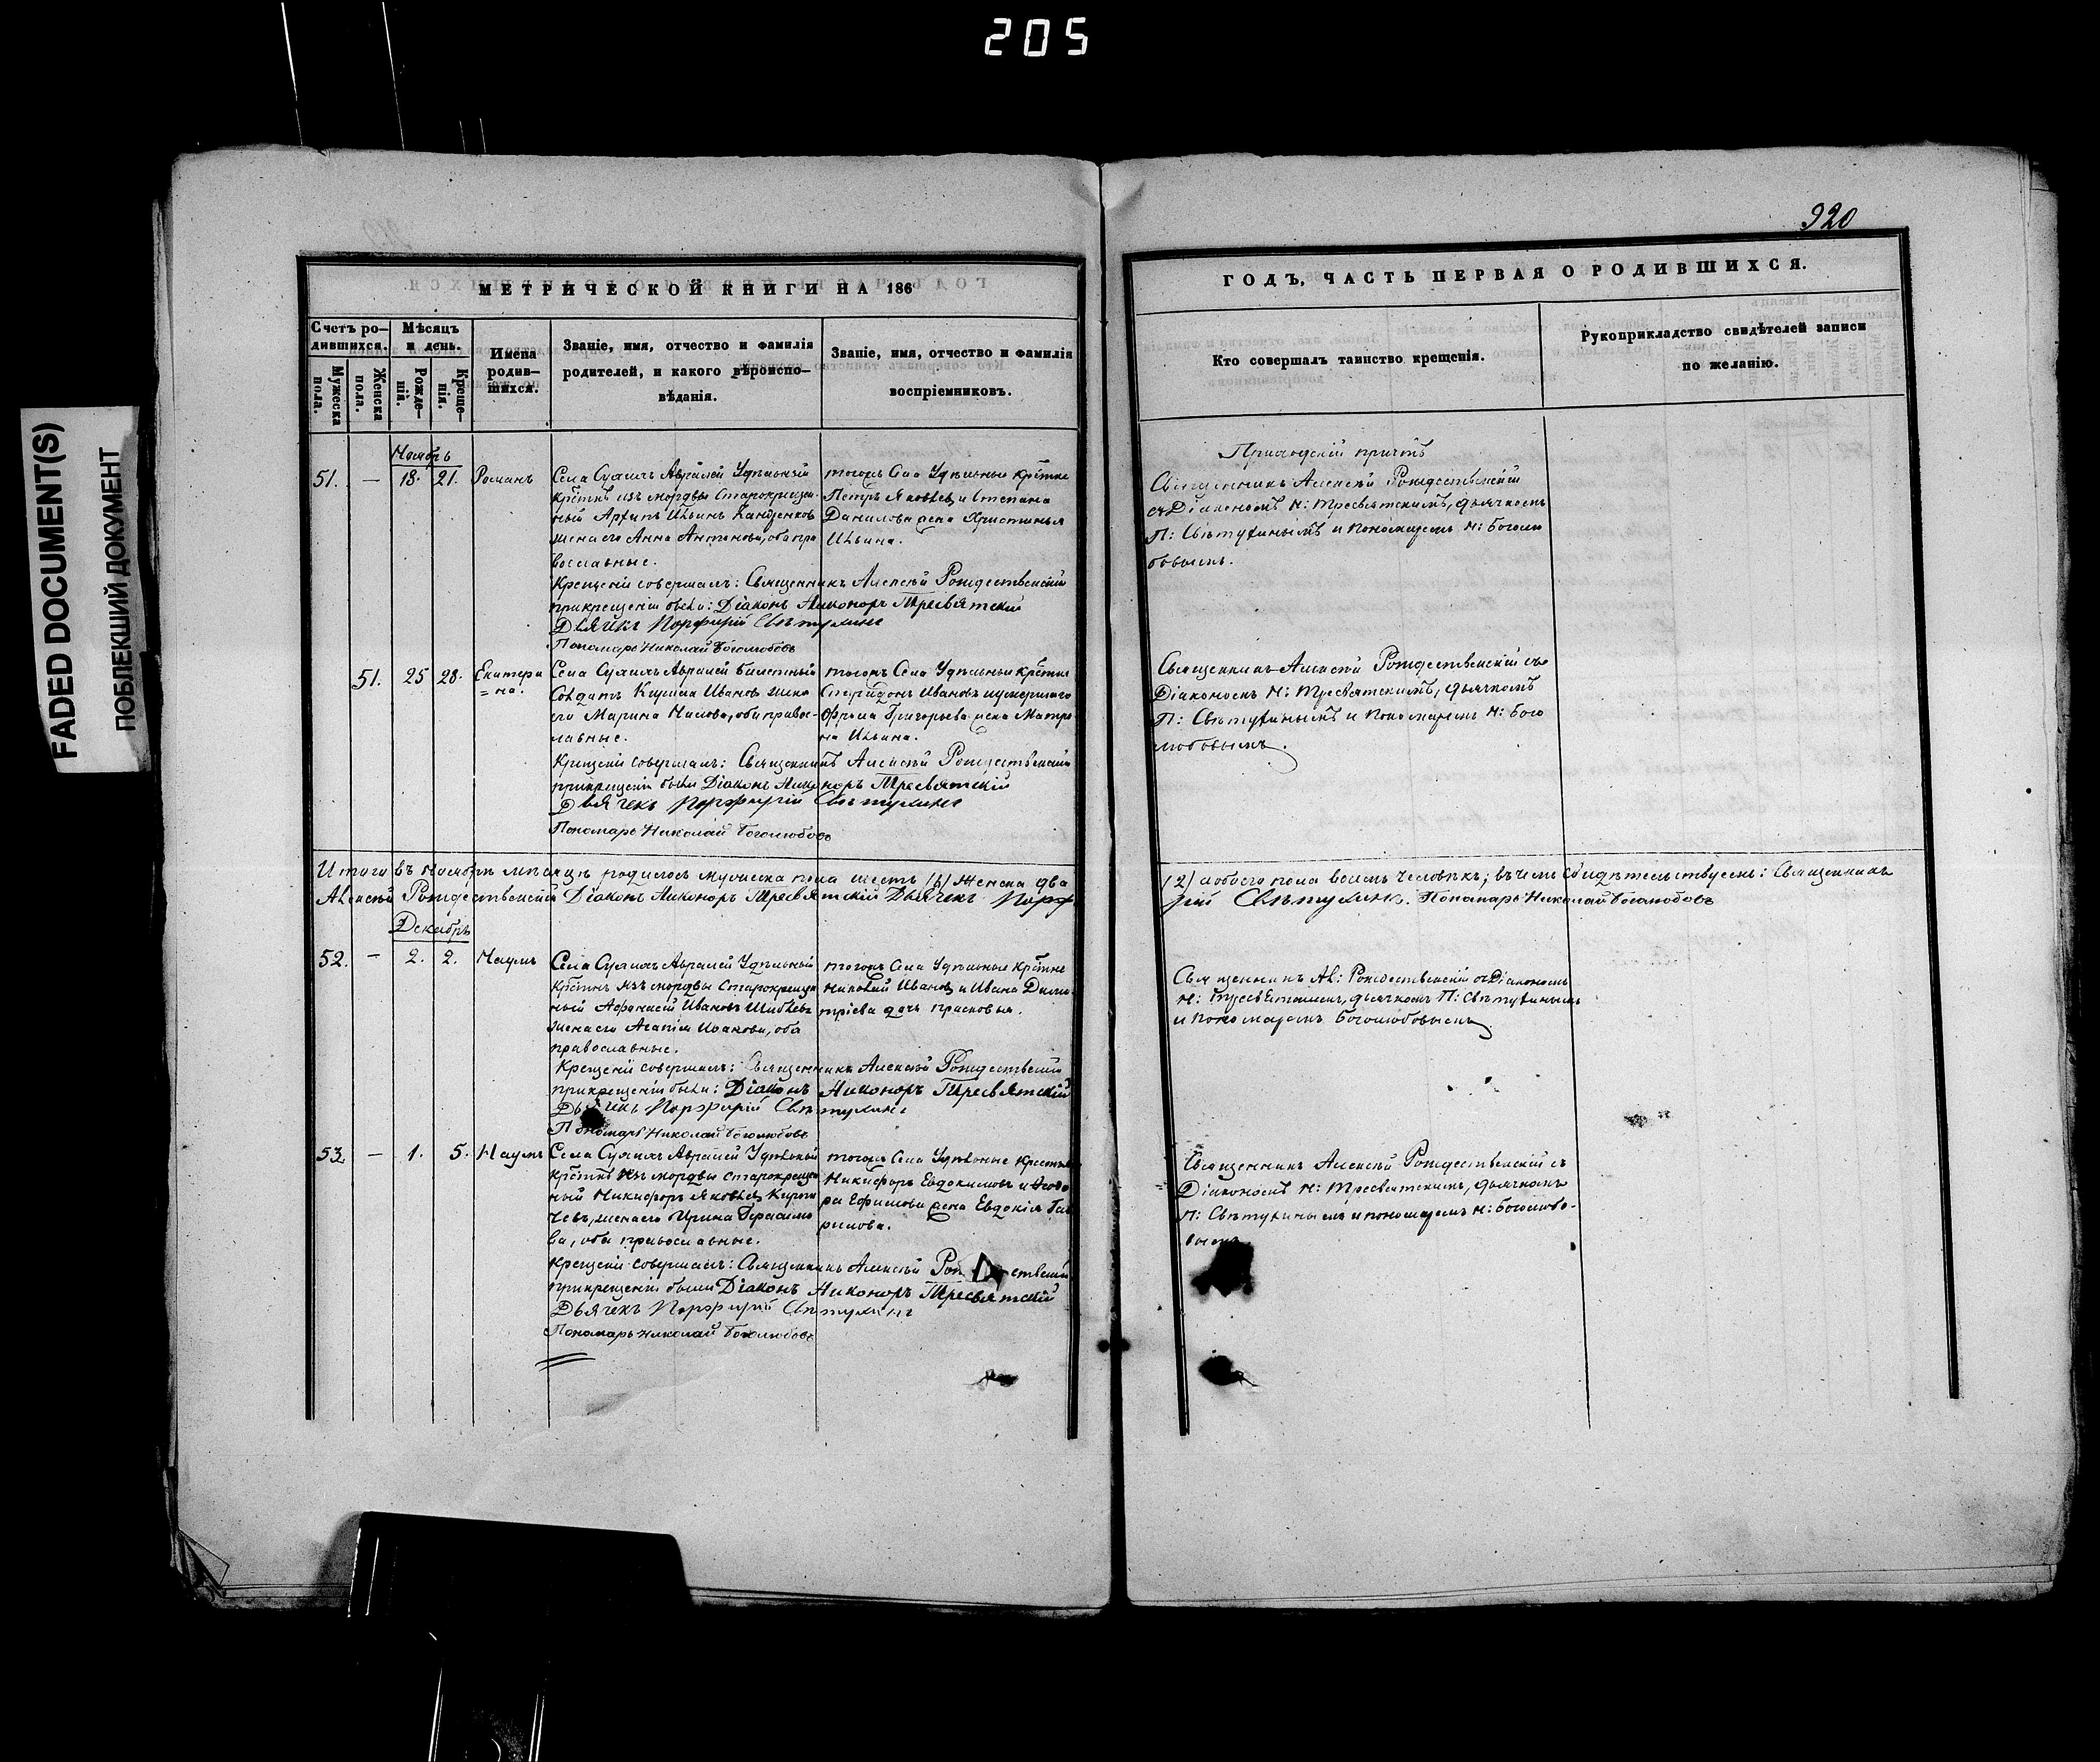 205
FADED DOCUMENT(S)
ПОБЛЕКШИЙ ДОКУМЕНТ
МЕТРИЧЕСКОЙ КНИГИ НА 186
Счетъ ро-
дившихся.
Мужеска
пола.
Женска
пола.
Мѣсяцъ
и день.
Рожде-
нія.
Креще-
нія.
Имена
родив-
шихся.
Званіе, имя, отчество и фамилія
родителей, и какого вѣроиспо-
вѣданія.
Званіе, имя, отчество и фамилія
воспріемниковъ.
Ноябрь
51. — 18. 21. Романъ
Села Авралей Удѣльный
изъ мордвы Старокрещен-
ный Архипъ Ильинъ
жена его Анна Антонова, оба пра
вославные.
тогожъ Села Удѣльные
Петръ Яковлев и Степана
Данилова жена Христинья
Ильина.
Крещеніе совершалъ: Священникъ Алексѣй Рождественскій
при крещеніи были: Діаконъ Никоноръ Тресвятскій
Дьячекъ Порфирій Свѣтухинъ
Пономарь Николай Боголюбовъ
51. 25 28. Екатери
=на.
Села Авралей билетный
Солдатъ Ивановъ жена
его Марина оба правос-
лавные.
тогожъ Села Удѣльные
Спиридонъ Ивановъ и умершаго
Григорьева жена Матре
на Ильина.
Крещеніе совершалъ: Священникъ Алексѣй Рождественскій
при крещеніи были Діаконъ Никоноръ Тресвятскій
Дьячекъ Порфирій Свѣтухинъ
Пономарь Николай Боголюбовъ
Итого въ Ноябрѣ мѣсяцѣ родилось мужеска пола шесть /6/ женска два
Алексѣй Рождественскій Діаконъ Никоноръ Тресвятскій Дьячекъ Порф
Декабрь
52. — 2. 2. Наумъ
Села Авралей Удѣльный
изъ мордвы старокрещен
ный Афанасій Ивановъ
жена его Агапія Иванова, оба
православные.
тогожъ Села Удѣльные
Николай Иванов и Ивана Дими
тріева дочь Прасковья.
Крещеніе совершалъ: Священникъ Алексѣй Рождественскій
при крещеніи были: Діаконъ Никоноръ Тресвятскій
Дьячекъ Порфирій Свѣтухинъ
Пономарь Николай Боголюбовъ
53. — 1. 5. Наумъ
Села Авралей Удѣльный
изъ мордвы старокрещен
ный Никифоръ Яковлев
жена его Ирина Герасимо
ва, оба православные.
тогожъ Села Удѣльные
Никифоръ Евдокимовъ и
Ефимова жена Евдокія Гав
рилова.
Крещеніе совершалъ: Священникъ Алексѣй Рождественскій
при крещеніи были Діаконъ Никоноръ Тресвятскій
Дьячекъ Порфирій Свѣтухинъ
Пономарь Николай Боголюбовъ
920
ГОДЪ, ЧАСТЬ ПЕРВАЯ О РОДИВШИХСЯ.
Кто совершалъ таинство крещенія.
Рукоприкладство свидѣтелей записи
по желанію.
Приходскій причтъ
Священникъ Алексѣй Рождественскій
съ Діакономъ Н: Тресвятскимъ, дьячкомъ
П: Свѣтухинымъ и Пономаремъ Н: Боголю
бовымъ.
Священникъ Алексѣй Рождественскій съ
Діакономъ Н: Тресвятскимъ, дьячкомъ
П: Свѣтухинымъ и Пономаремъ Н: Бого
любовымъ.
/2/ а обоего пола восемь человѣкъ; въ чемъ свидѣтельствуемъ: Священникъ
рій Свѣтухинъ. Пономарь Николай Боголюбовъ
Священникъ Ал: Рождественскій съ Діакономъ
Н: Тресвятскимъ, дьячкомъ П: Свѣтухинымъ
и Пономаремъ Боголюбовымъ
Священникъ Алексѣй Рождественскій съ
Діакономъ Н: Тресвятскимъ, дьячкомъ
П: Свѣтухинымъ и пономаремъ Н: Боголюбо-
вымъ